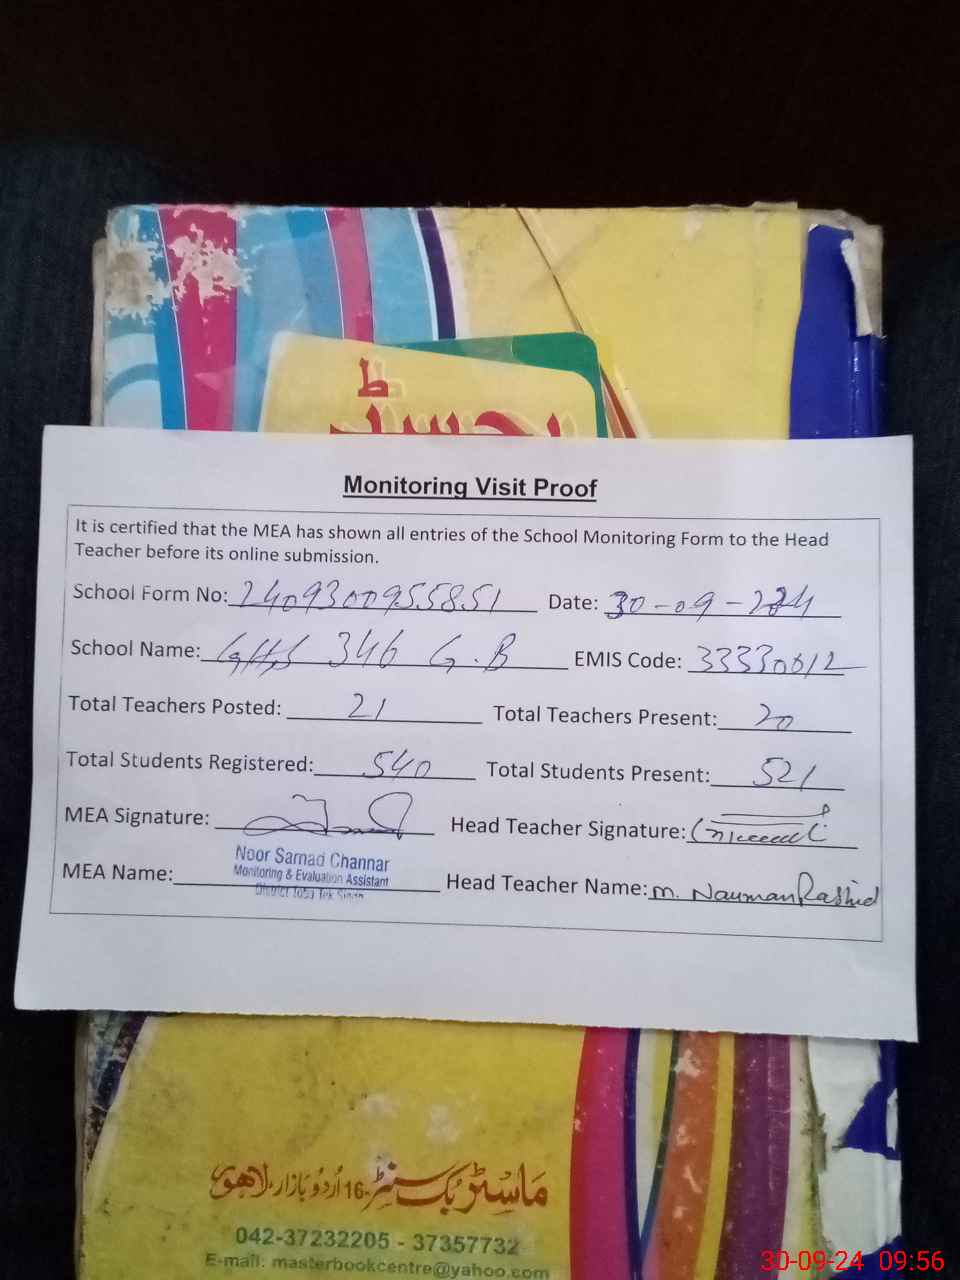 رجسٹر
Monitoring Visit Proof
It is certified that the MEA has shown all entries of the School Monitoring Form to the Head
Teacher before its online submission.
School Form No: 2409300955851 Date: 30-09-2024
School Name: GHS 346 G.B EMIS Code: 33330612
Total Teachers Posted: 21 Total Teachers Present: 20
Total Students Registered: 540 Total Students Present: 521
MEA Signature: Head Teacher Signature:
MEA Name: Noor Samad Channar Head Teacher Name: M. Nauman Rashid
Monitoring & Evaluation Assistant
District Toba Tek Singh
ماسٹر بک سنٹر 16-اُردو بازار، لاہور
042-37232205 - 37357732
E-mail: masterbookcentre@yahoo.com
30-09-24 09:56